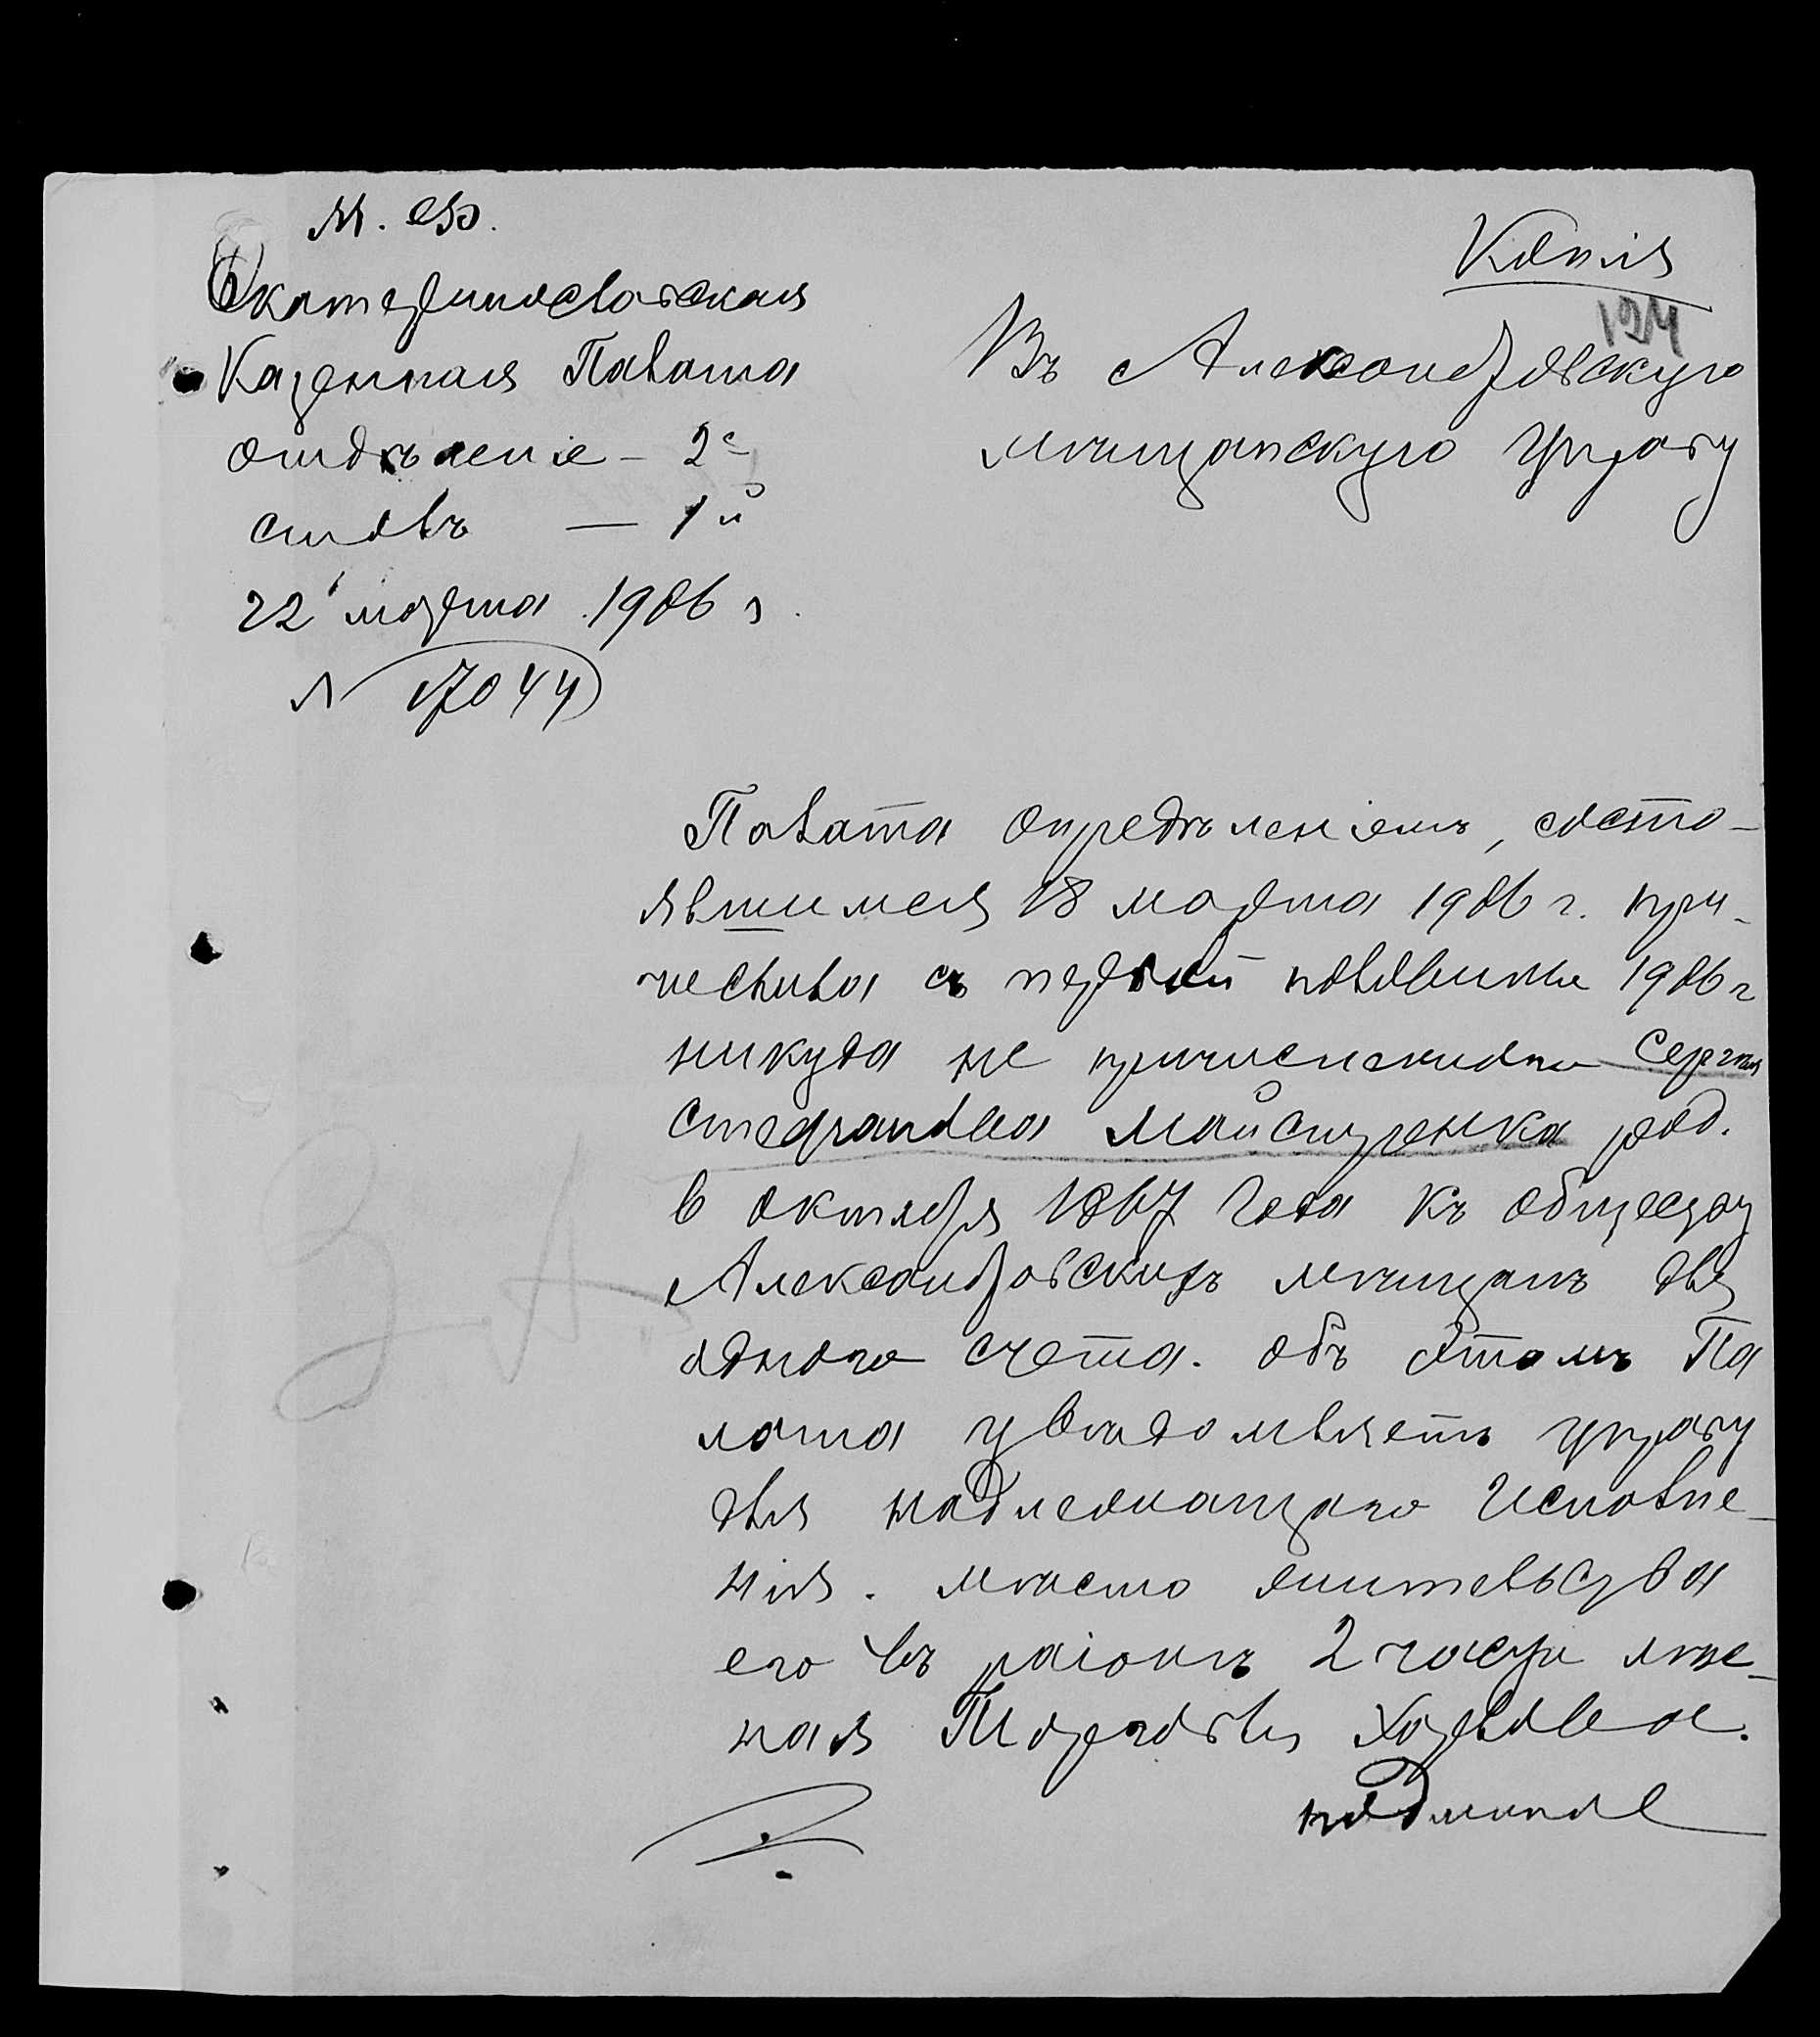 М. Ф.
Екатеринославская
Казенная Палата
отдѣленіе – 2е
столъ — 1й
22 марта 1906 г.
N 17044
Копія
194
Въ Александровскую
мѣщанскую Управу
Палата опредѣленіемъ, состо-
явшимся 18 марта 1906 г. при-
числила съ первой половины 1906 г
никуда не приписаннаго Сергѣя
Стефанова Майстренка род.
6 октября 1867 года къ обществу
Александровскихъ мѣщанъ для
одного счета. Объ этомъ Па
лата увѣдомляетъ управу
для надлежащаго исполне-
нія. Мѣсто жительства
его въ раіонѣ 2 части
ная Торговля
подлинное